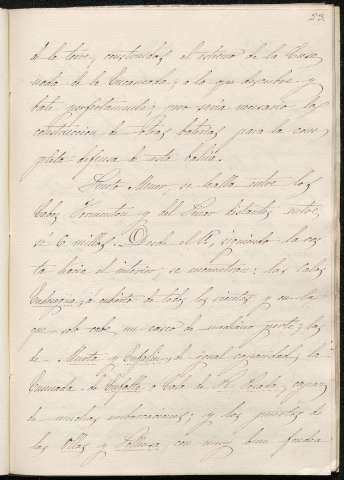 de la torre, construidas al estremo de la Ense
nada de la Encancada; a la que descubre y
bate perfectamente; pero seria necesario la
construccion de otras baterias para la com
pleta defensa de esta bahia.
Puerto Menor, se halla entre los
Cabos Formentor y del Pinar distantes entre
si 6 millas. Desde el P., siguiendo la cos
ta hacia el interior, se encuentran: las Calas
á cubierto de todos los vientos y en la
que solo cabe un barco de mediano porte; las
de Murta y de igual capacidad, la
Ensenada de ó Cala de capaz
de muchas embarcaciones; y los puertos de
las Ollas y Pollensa, con muy buen fondea